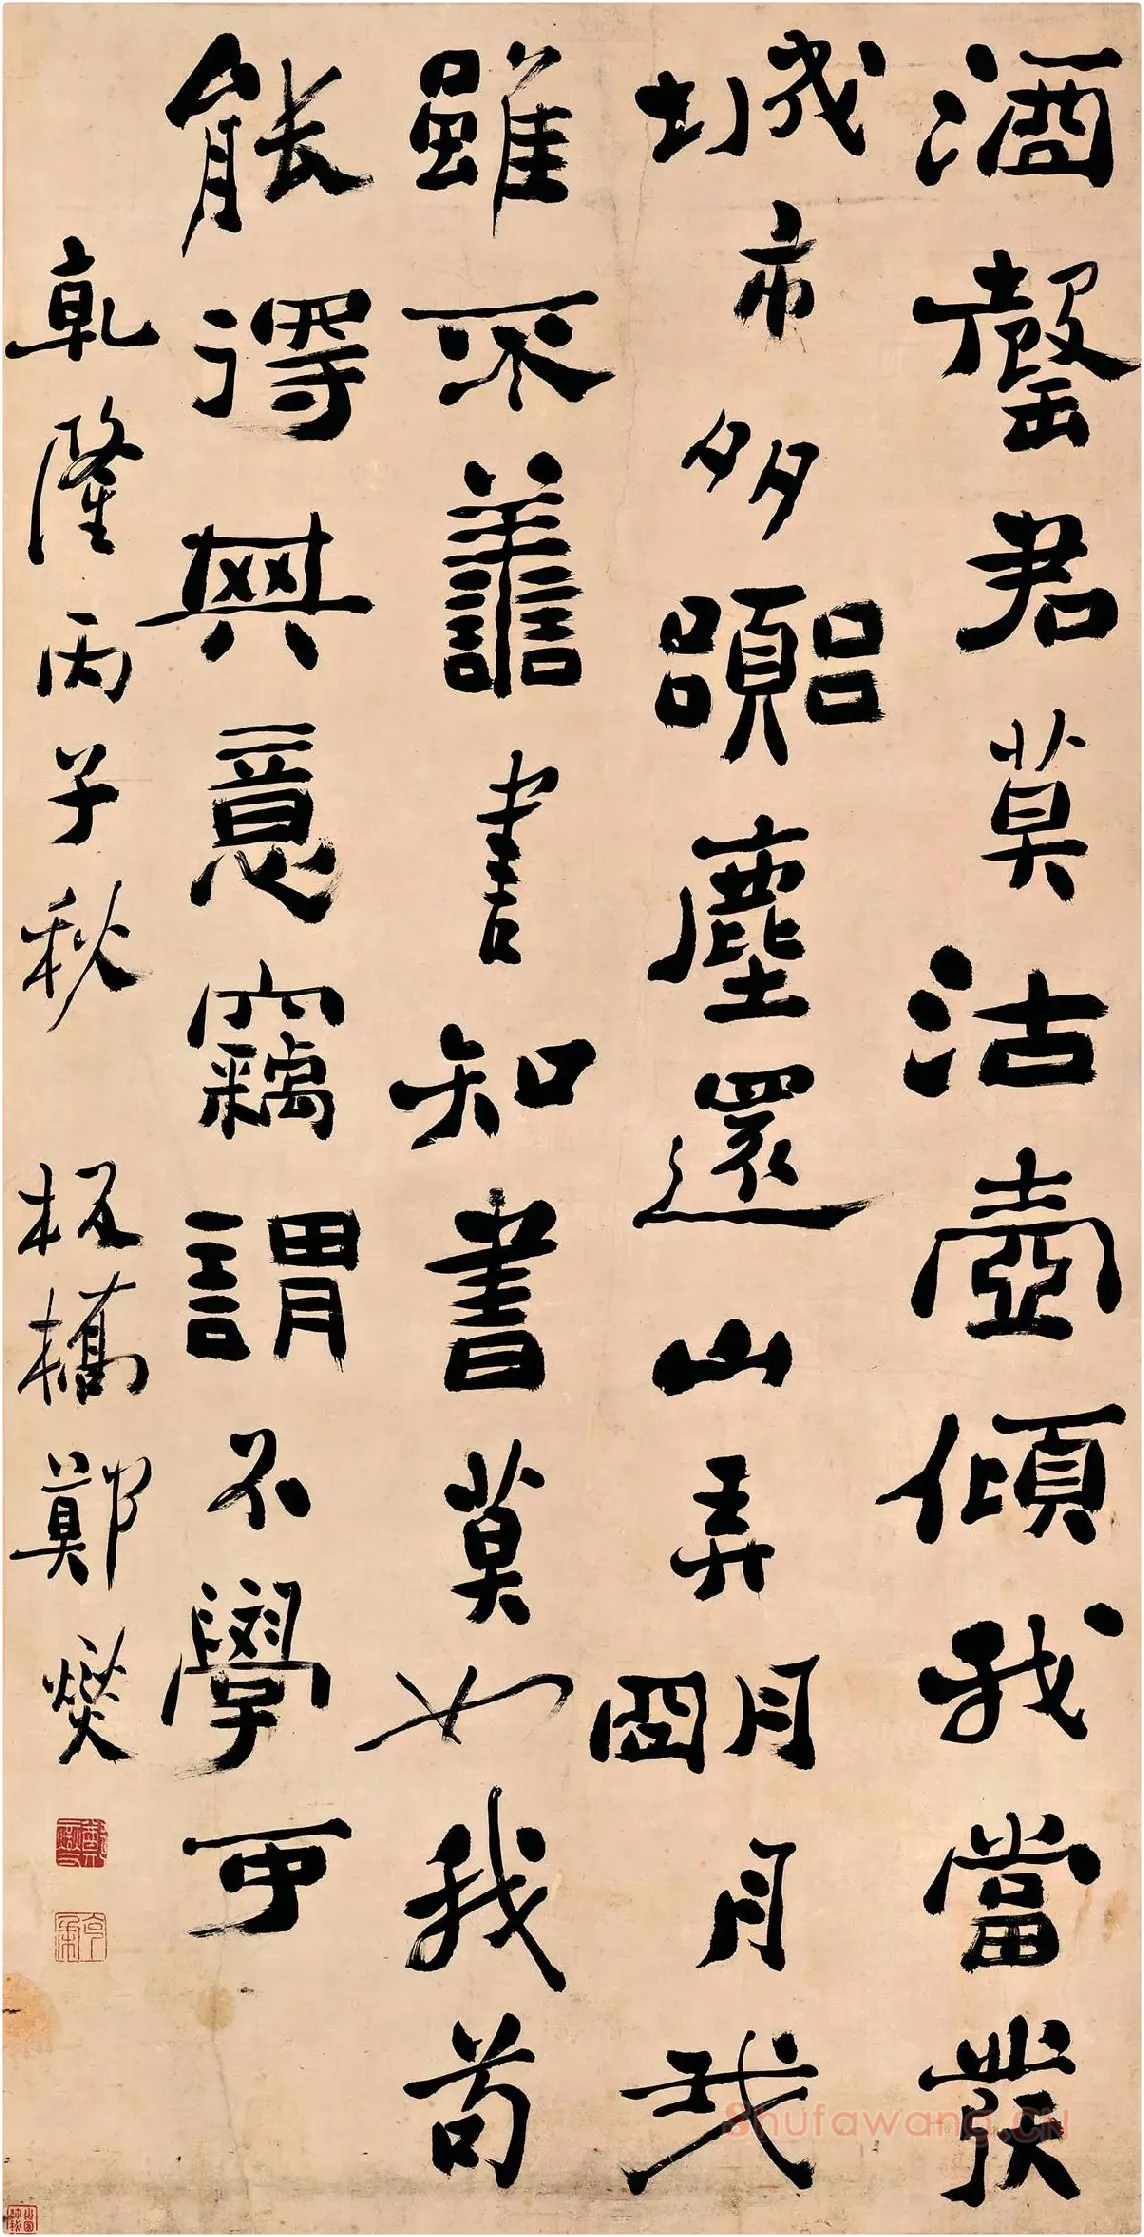 酒罄君莫沽壺傾我當發
城市多囂塵還山弄朙月我
雖不善書知書莫如我苟
能得其意竊謂不學可
乾隆丙子秋 板橋鄭燮
克柔
Shufawang.CN